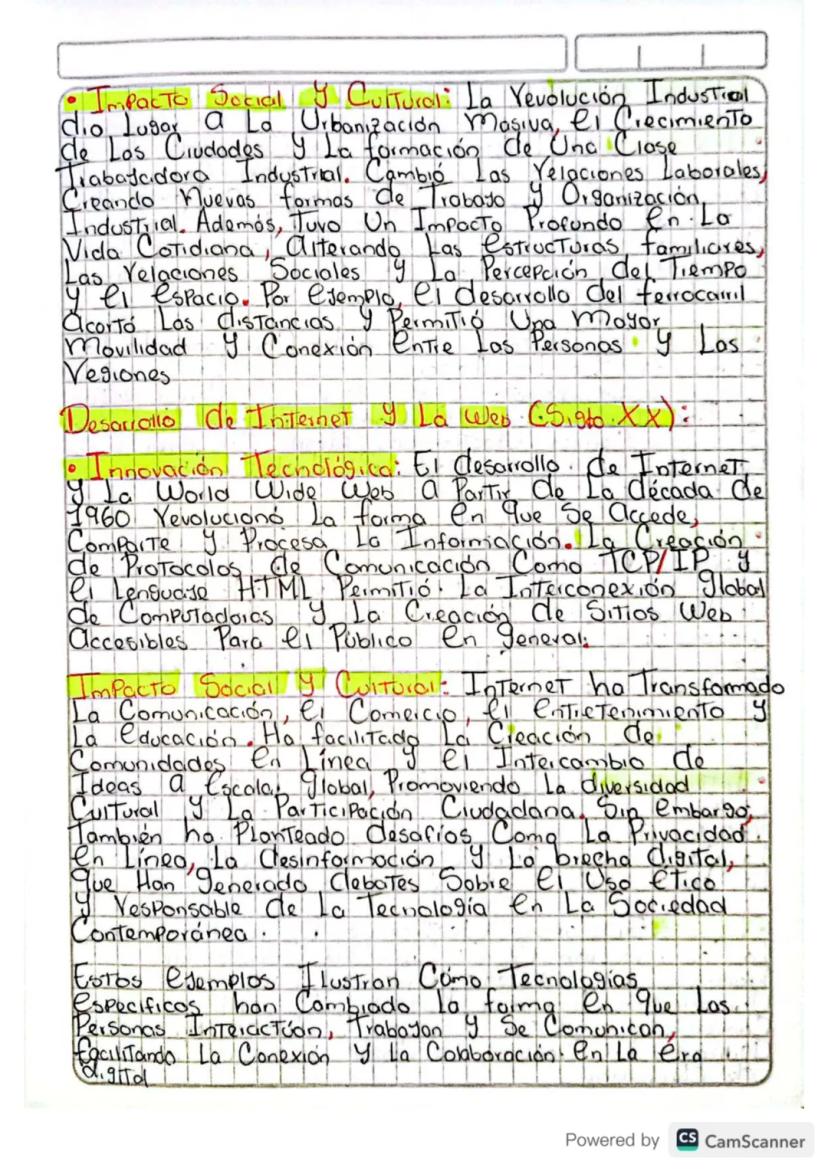 • Impacto Social y Cultural: La revolución Industrial
dio Lugar a La Urbanización Masiva, el Crecimiento
de Las Ciudades y La formación de Una Clase
Trabajadora Industrial. Cambió Las relaciones Laborales,
Creando nuevas formas de Trabajo y Organización
Industrial. Además, Tuvo Un Impacto Profundo en La
Vida Cotidiana, alterando Las estructuras familiares,
Las relaciones Sociales y La Percepción del Tiempo
y el espacio. Por ejemplo, el desarrollo del ferrocarril
acortó Las distancias y Permitió Una mayor
Movilidad y Conexión entre Las Personas y Las
regiones
Desarrollo de Internet y La Web (Siglo XX):
• Innovación Tecnológica: El desarrollo de Internet
y La World Wide Web a Partir de La década de
1960 revolucionó La forma en que Se Accede,
Comparte y Procesa La Información. La Creación
de Protocolos de Comunicación Como TCP/IP y
el Lenguaje HTML Permitió La Interconexión global
de Computadoras y La Creación de Sitios Web
accesibles Para el Público en general.
Impacto Social y Cultural: Internet ha Transformado
La Comunicación, el Comercio, el entretenimiento y
La educación. Ha facilitado La Creación de
Comunidades en Línea y el Intercambio de
Ideas a escala global, Promoviendo La diversidad
Cultural y La Participación Ciudadana. Sin embargo,
También ha Planteado desafíos Como La Privacidad
en Línea, La desinformación y La brecha digital,
que Han generado debates Sobre el Uso ético
y responsable de La Tecnología en La Sociedad
Contemporánea.
Estos ejemplos Ilustran Cómo Tecnologías
específicas han Cambiado La forma en que Las
Personas Interactúan, Trabajan y Se Comunican,
facilitando La Conexión y La Colaboración en La era
digital
Powered by CS CamScanner